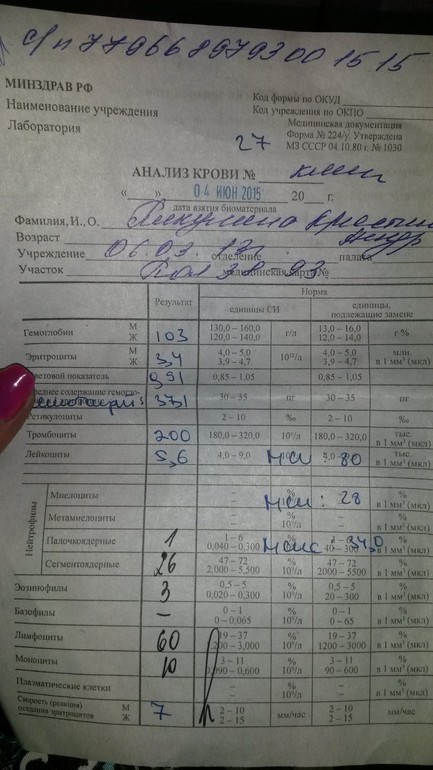 с/п 779668979300 15 15
МИНЗДРАВ РФ
Код формы по ОКУД
Наименование учреждения
Код учреждения по ОКПО
Медицинская документация
Лаборатория
Форма № 224/у. Утверждена
27
МЗ СССР 04.10.80 г. № 1030
АНАЛИЗ КРОВИ №
« » 04 ИЮН 2015 20 г.
дата взятия биоматериала
Фамилия, И., О.
Возраст
Учреждение отделение палата
Участок медицинская карта №
Результат Норма
единицы СИ единицы, подлежащие замене
Гемоглобин М Ж 103 130,0 – 160,0 120,0 – 140,0 г/л 13,0 – 16,0 12,0 – 14,0 г %
Эритроциты М Ж 3,4 4,0 – 5,0 3,9 – 4,7 10¹²/л 4,0 – 5,0 3,9 – 4,7 млн. в 1 мм³ (мкл)
показатель 0,91 0,85 – 1,05 0,85 – 1,05
содержание 37,1 30 – 35 пг 30 – 35 пг
Ретикулоциты 2 – 10 ‰ 2 – 10 ‰
Тромбоциты 200 180,0 – 320,0 10⁹/л 180,0 – 320,0 тыс. в 1 мм³ (мкл)
Лейкоциты 5,6 4,0 – 9,0 : 80 тыс. в 1 мм³ (мкл)
Нейтрофилы
Миелоциты – % 10⁹/л : 28 % в 1 мм³ (мкл)
Метамиелоциты – % 10⁹/л – % в 1 мм³ (мкл)
Палочкоядерные 1 1 – 6 0,040 – 0,300 34,0 % в 1 мм³ (мкл)
Сегментоядерные 26 47 – 72 2,000 – 5,500 % 10⁹/л 47 – 72 2000 – 5500 % в 1 мм³ (мкл)
Эозинофилы 3 0,5 – 5 0,020 – 0,300 % 10⁹/л 0,5 – 5 20 – 300 % в 1 мм³ (мкл)
Базофилы – 0 – 1 0 – 0,065 % 10⁹/л 0 – 1 0 – 65 % в 1 мм³ (мкл)
Лимфоциты 60 19 – 37 % 10⁹/л 19 – 37 1200 – 3000 % в 1 мм³ (мкл)
Моноциты 10 3 – 11 % 10⁹/л 3 – 11 90 – 600 % в 1 мм³ (мкл)
Плазматические клетки – % 10⁹/л – % в 1 мм³ (мкл)
Скорость (реакция) оседания эритроцитов М Ж 7 2 – 10 2 – 15 мм/час 2 – 10 2 – 15 мм/час